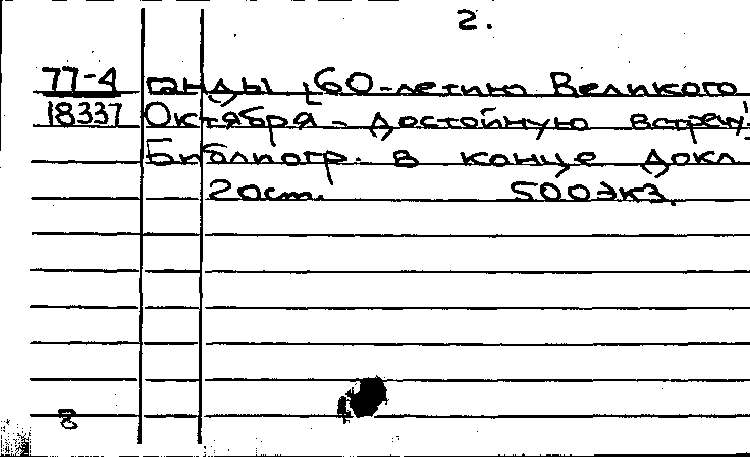 2.
77-4 ганды „60-летию Великого
18337 Октября - достойную встречу"
Библиогр. в конце докл
20 ст. 500 экз.
8